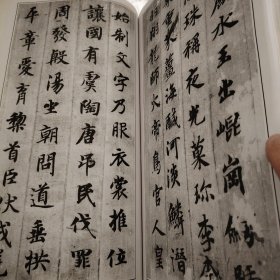 水玉出崐崗劔號
珠稱夜光菓珎李柰
薑海鹹河淡鱗潛
翔龍師火帝鳥官人
始制文字乃服衣裳推位
讓國有虞陶唐弔民伐罪
周發殷湯坐朝問道垂拱
平章愛育黎首臣伏戎